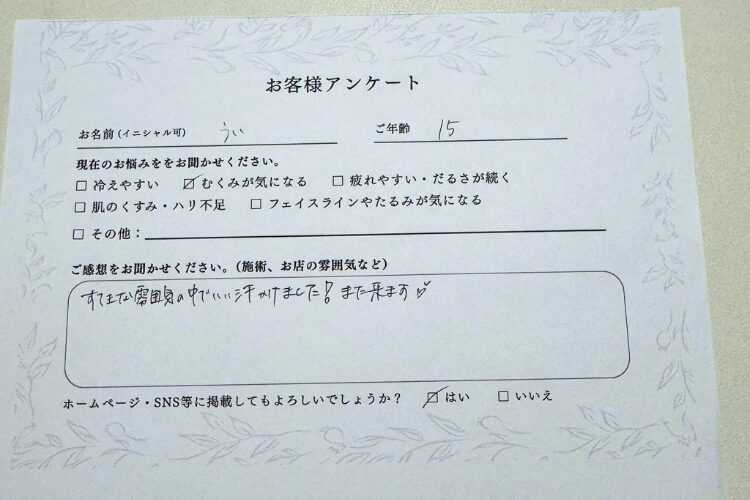 お客様アンケート
お名前(イニシャル可) うい ご年齢 15
現在のお悩みををお聞かせください。
□ 冷えやすい ☑ むくみが気になる □ 疲れやすい・だるさが続く
□ 肌のくすみ・ハリ不足 □ フェイスラインやたるみが気になる
□ その他：
ご感想をお聞かせください。(施術、お店の雰囲気など)
すてきな雰囲気の中でいい汗かけました！また来ます♡
ホームページ・SNS等に掲載してもよろしいでしょうか？ ☑ はい □ いいえ